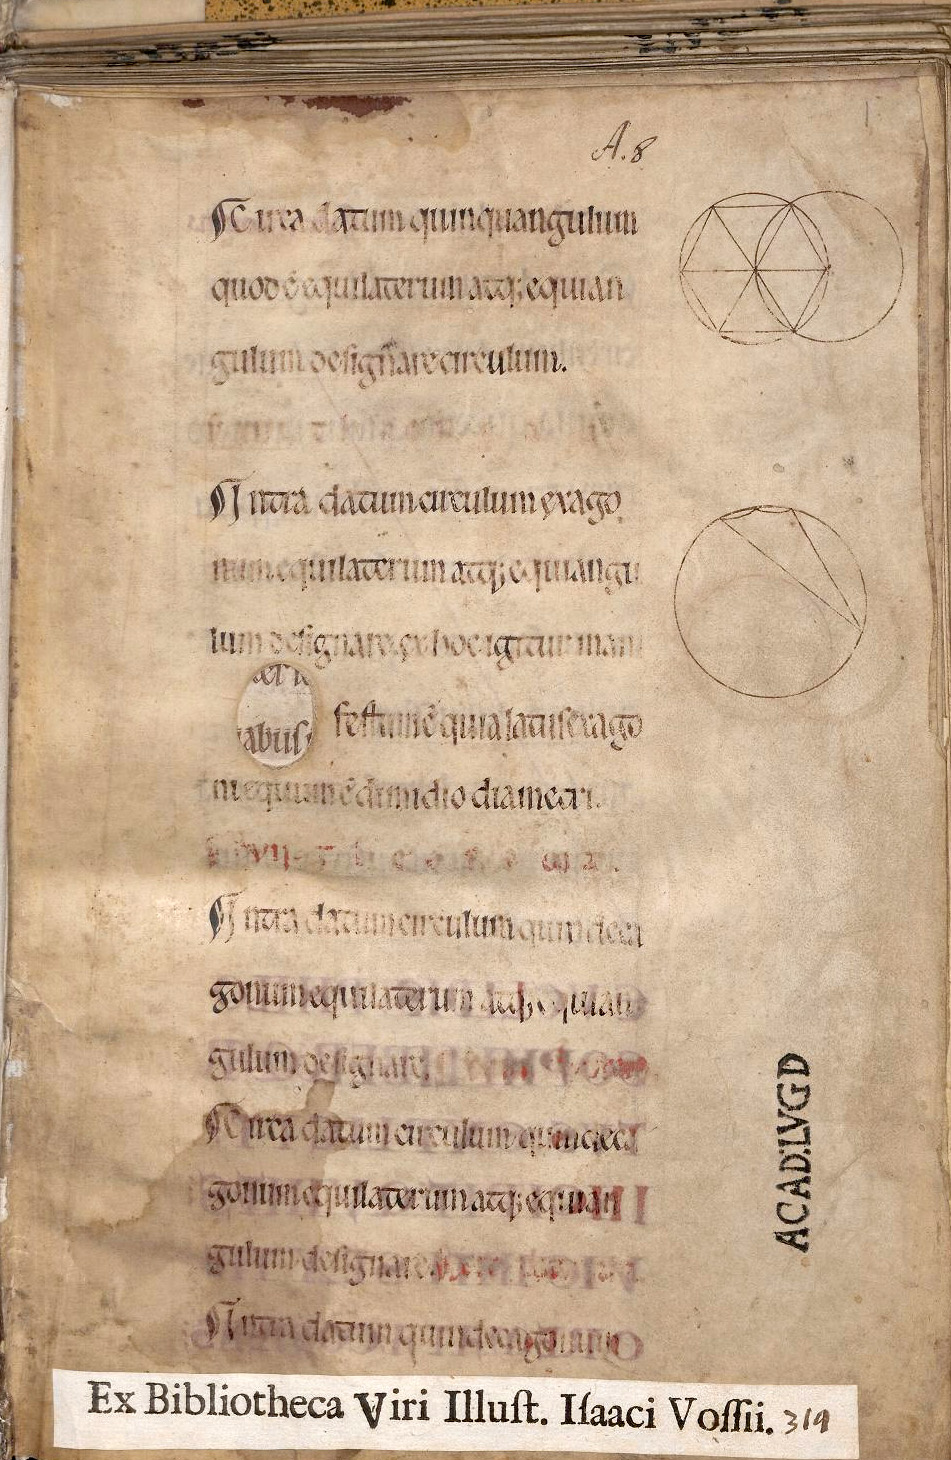 A.8
1
Circa datum quinquangulum
quod ē equilaterum atq; equian
gulum designare circulum.
Intra datum circulum exago
num equilaterum atq; equiangu
lum designare ex hoc igitur mani
festum ē quia latus exago
abus
ni equum ē dimidio diametri.
Intra datum circulum quindeca
gonum equilaterum atq; equian
gulum designare
Circa datum circulum quindeca
gonum equilaterum atq; equian
gulum designare
Intra datum quindecagonum
ACAD.LVGD
Ex Bibliotheca Viri Illuſt. Iſaaci Voſſii. 319